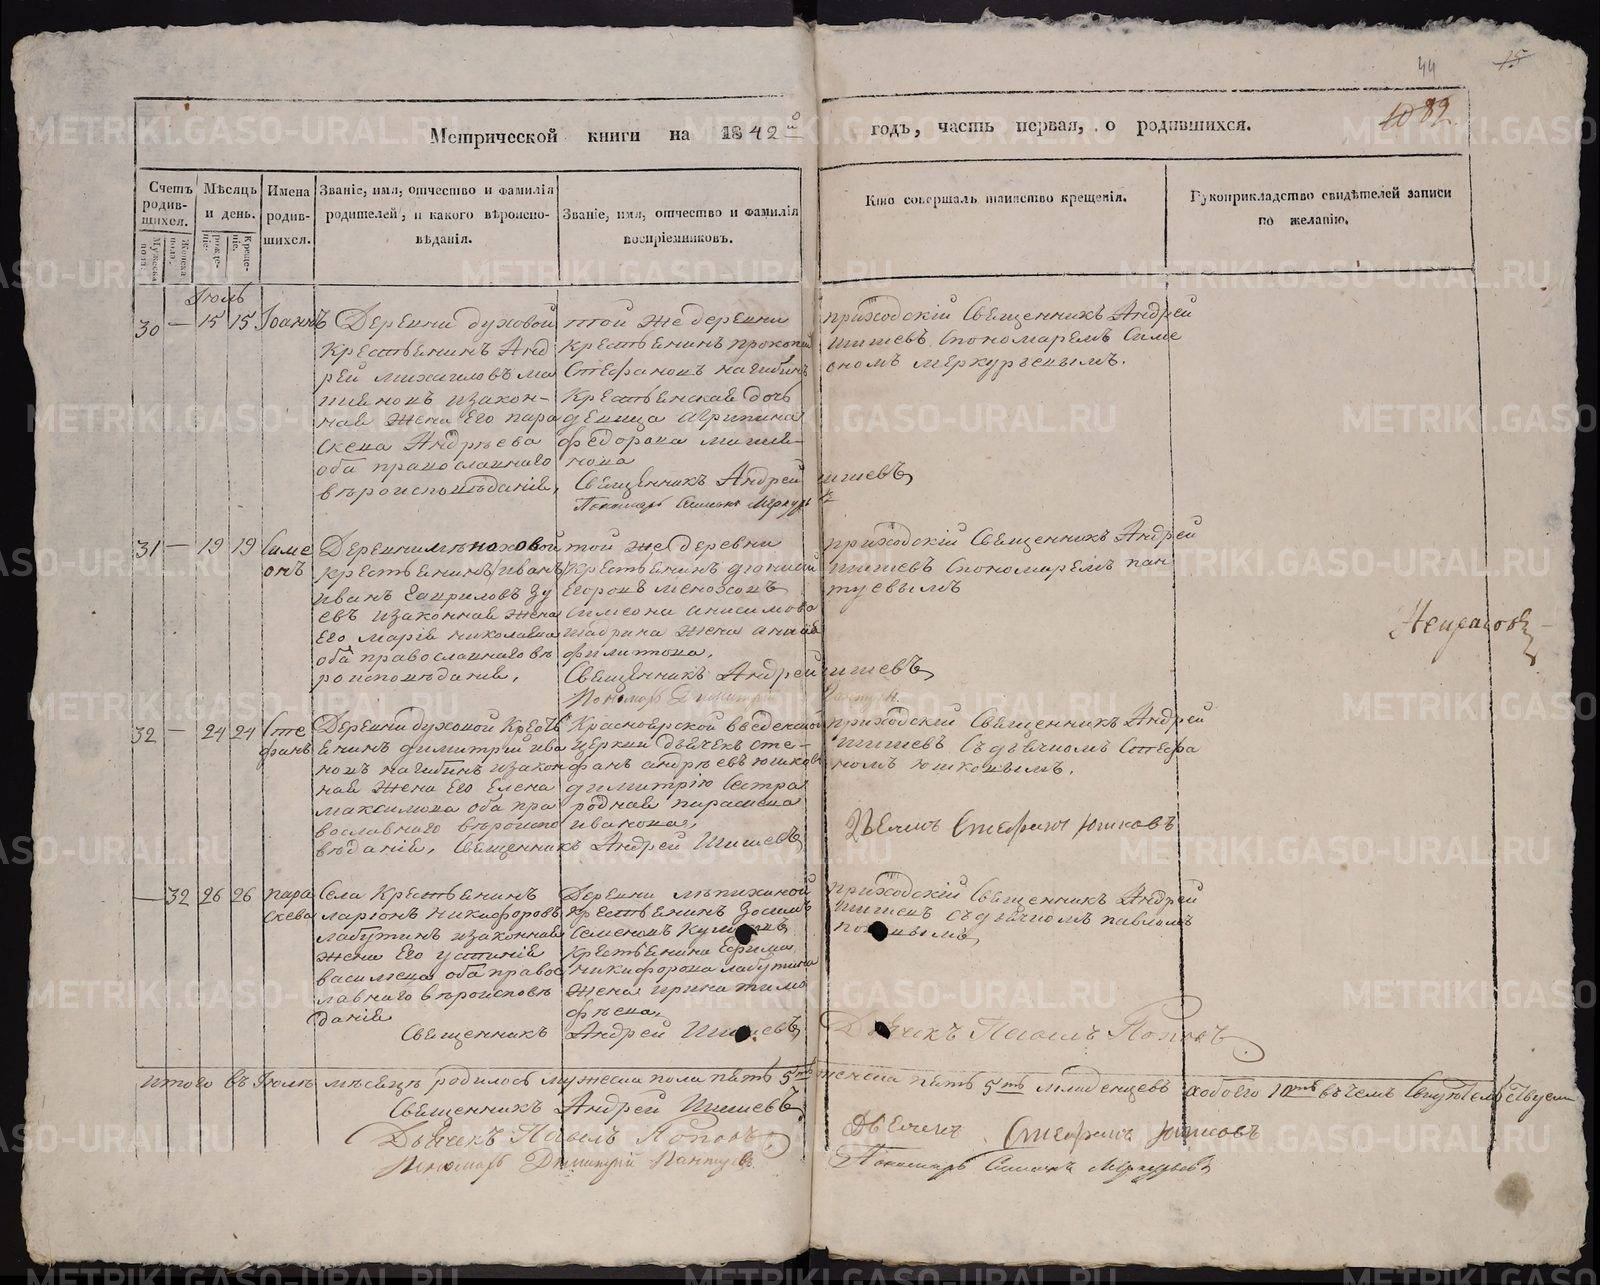 44
15
1082
Метрической книги на 1842й годъ, часть первая, о родившихся.
Счетъ родившихся.
Мужеска полъ.
Женска полъ.
Мѣсяцъ и день.
рожденіе.
Крещеніе.
Имена родившихся.
Званіе, имя, отчество и фамилія родителей, и какого вѣроисповѣданія.
Званіе, имя, отчество и фамилія воспріемниковъ.
Кто совершалъ таинство крещенія.
Рукоприкладство свидѣтелей записи по желанію.
Іюль
30 — 15 15 Іоаннъ
Деревни духовой
крестьенинъ Анд
рей михаиловъ ма
изакон-
ная жена Его пара
скева Андрѣева
оба православнаго
вѣроисповѣданіе,
той же деревни
крестьенинъ прокопий
Стефановъ нагибинъ
Крестьенская дочь
девица агрипина
федорова
Священникъ Андрей Шишевъ
Пономарь Симеонъ Меркурь
приходскій Священникъ Андрей
шишевъ спономаремъ Симе
ономъ меркурьевымъ.
31 — 19 19 Симе
онъ
крестьенинъ иванъ
иванъ Гавриловъ Зу
евъ изаконная жена
Его марія николаева
оба православнаго вѣ
роисповѣданіе,
той же деревни
крестьенинъ дионисий
Егоровъ
симеона анисимова
шабрина жена
филипова,
Священникъ Андрей Шишевъ
Пономарь Димитрий Пантуев.
приходскій Священникъ Андрей
шишевъ спономаремъ пан
туевымъ
32 — 24 24 Сте
фанъ
Деревни духовой Крестъ
енинъ димитрий ива
новъ нагибинъ изакон
ная жена Его Елена
максимова оба пра
вославнаго вѣроиспо
вѣданіе, Священникъ Андрей Шишевъ
Красноярской введенской
церкви дьячекъ сте-
фанъ андрѣевъ юшковъ
димитрію Сестра
родная параскева
иванова,
приходский Священникъ Андрей
шишевъ съ дьячкомъ Стефа
номъ юшковымъ.
Дьячекъ Стефанъ Юшковъ
— 32 26 26 пара
скева
Села Крестьенинъ
ларіонъ никифоровъ
лабутинъ изаконная
жена Его устинія
васильева оба правос
лавнаго вѣроисповѣ
даніе
Деревни
крестьенинъ Зосимъ
Семеновъ
крестьенина Ефима
никифорова лабутина
жена ирина тимо
фѣева,
Священникъ Андрей Шишевъ
приходскій Священникъ Андрей
шишевъ съ дьячкомъ павломъ
Дьячекъ Павелъ Поповъ
итого въ Іюлѣ мѣсяцѣ родилось мужеска пола пять 5ть женска пять 5ть младенцевъ аобоего 10ть въчемъ Свидѣтельствуем
Священникъ Андрей Шишевъ
Дьячекъ Павелъ Поповъ
Пономарь Димитрий Пантуевъ
Дьячекъ Стефанъ Юшковъ
Пономарь Симеонъ Меркурьевъ
METRIKI.GASO-URAL.RU